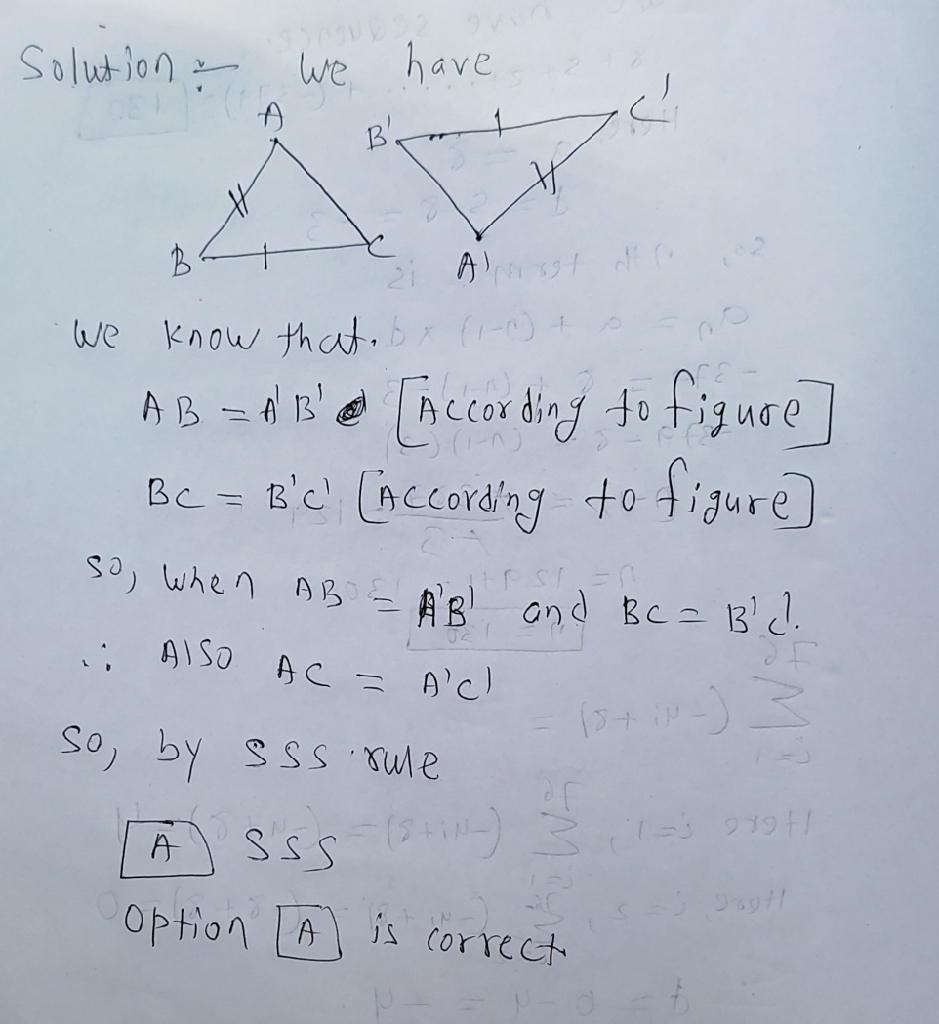 Solution :- We have
A B' C'
B C A'
We know that.
AB = A'B' [According to figure]
BC = B'C' [According to figure]
so, when AB = A'B' and BC = B'C'.
∴ Also AC = A'C'
So, by SSS rule
A SSS
Option A is correct